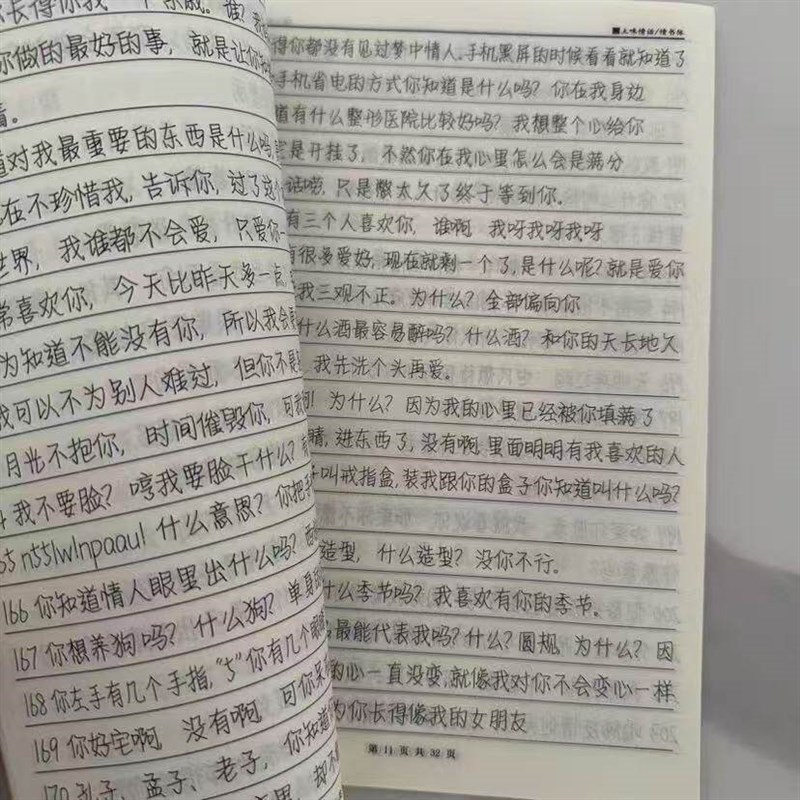 你长得像我一个亲戚。谁?我
你做的最好的事,就是让你
着。
道对我最重要的东西是什么吗
在不珍惜我,告诉你,过了这个
世界,我谁都不会爱,只爱你一
常喜欢你,今天比昨天多一点
为知道不能没有你,所以我会
我可以不为别人难过,但你不是
月光不抱你,时间催毁你,可我
我不要脸?哼我要脸干什么?
55 n55lwlnpaaul 什么意思?你把手
166 你知道情人眼里出什么吗?西
167 你想养狗吗?什么狗?单身
168 你左手有几个手指,"5"你有几个
169 你好宅啊,没有啊,可你呆
170 孔子、孟子、老子,你知道
三味情话/情书体
得你都没有见过梦中情人。手机黑屏的时候看看就知道了
手机省电的方式你知道是什么吗?你在我身边
道有什么整形医院比较好吗?我想整个心给你
定是开挂了,不然你在我心里怎么会是满分
话唠,只是憋太久了终于等到你。
有三个人喜欢你,谁啊,我呀我呀我呀
有很多爱好,现在就剩一个了,是什么呢?就是爱你
我三观不正。为什么?全部偏向你
什么酒最容易醉吗?什么酒?和你的天长地久
我先洗个头再爱。
为什么?因为我的心里已经被你填满了
睛,进东西了,没有啊,里面明明有我喜欢的人
子叫戒指盒,装我跟你的盒子你知道叫什么吗?
造型,什么造型?没你不行。
什么季节吗?我喜欢有你的季节。
最能代表我吗?什么?圆规,为什么?因
的心一直没变,就像我对你不会变心一样
为你长得像我的女朋友
第11页共32页